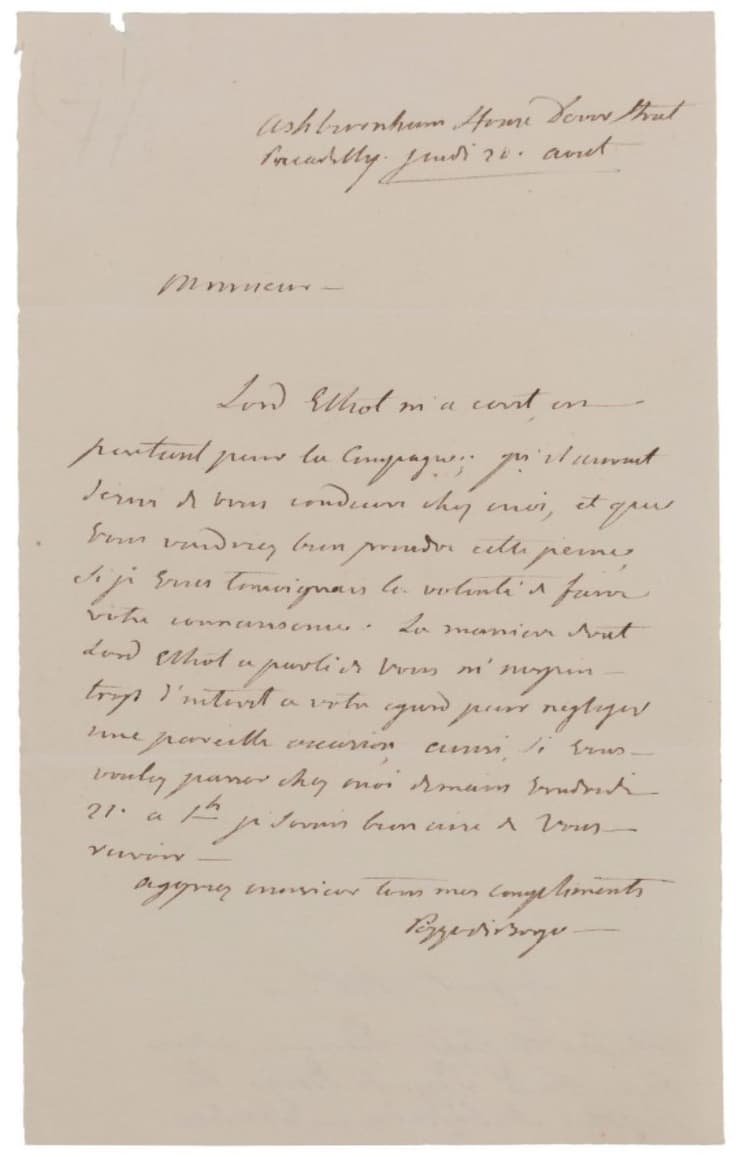 Ashburnham House Dover Street
Piccadilly. jeudi 20. aout
Monsieur —
Lord Elliot m'a ecrit, en
partant pour la Campagne; qu'il auroit
desiré de vous conduire chez moi, et que
vous voudriez bien prendre cette peine,
si je vous temoignais la volonté de faire
votre connaissance. La maniere dont
Lord Elliot a parlé de vous m'inspire
trop d'interet a votre egard pour negliger
une pareille occasion, aussi, si vous
voulez passer chez moi demain vendredi
21. a 1h je serais bien aise de vous
revoir —
agreez monsieur tous mes compliments
Pozzo di Borgo —